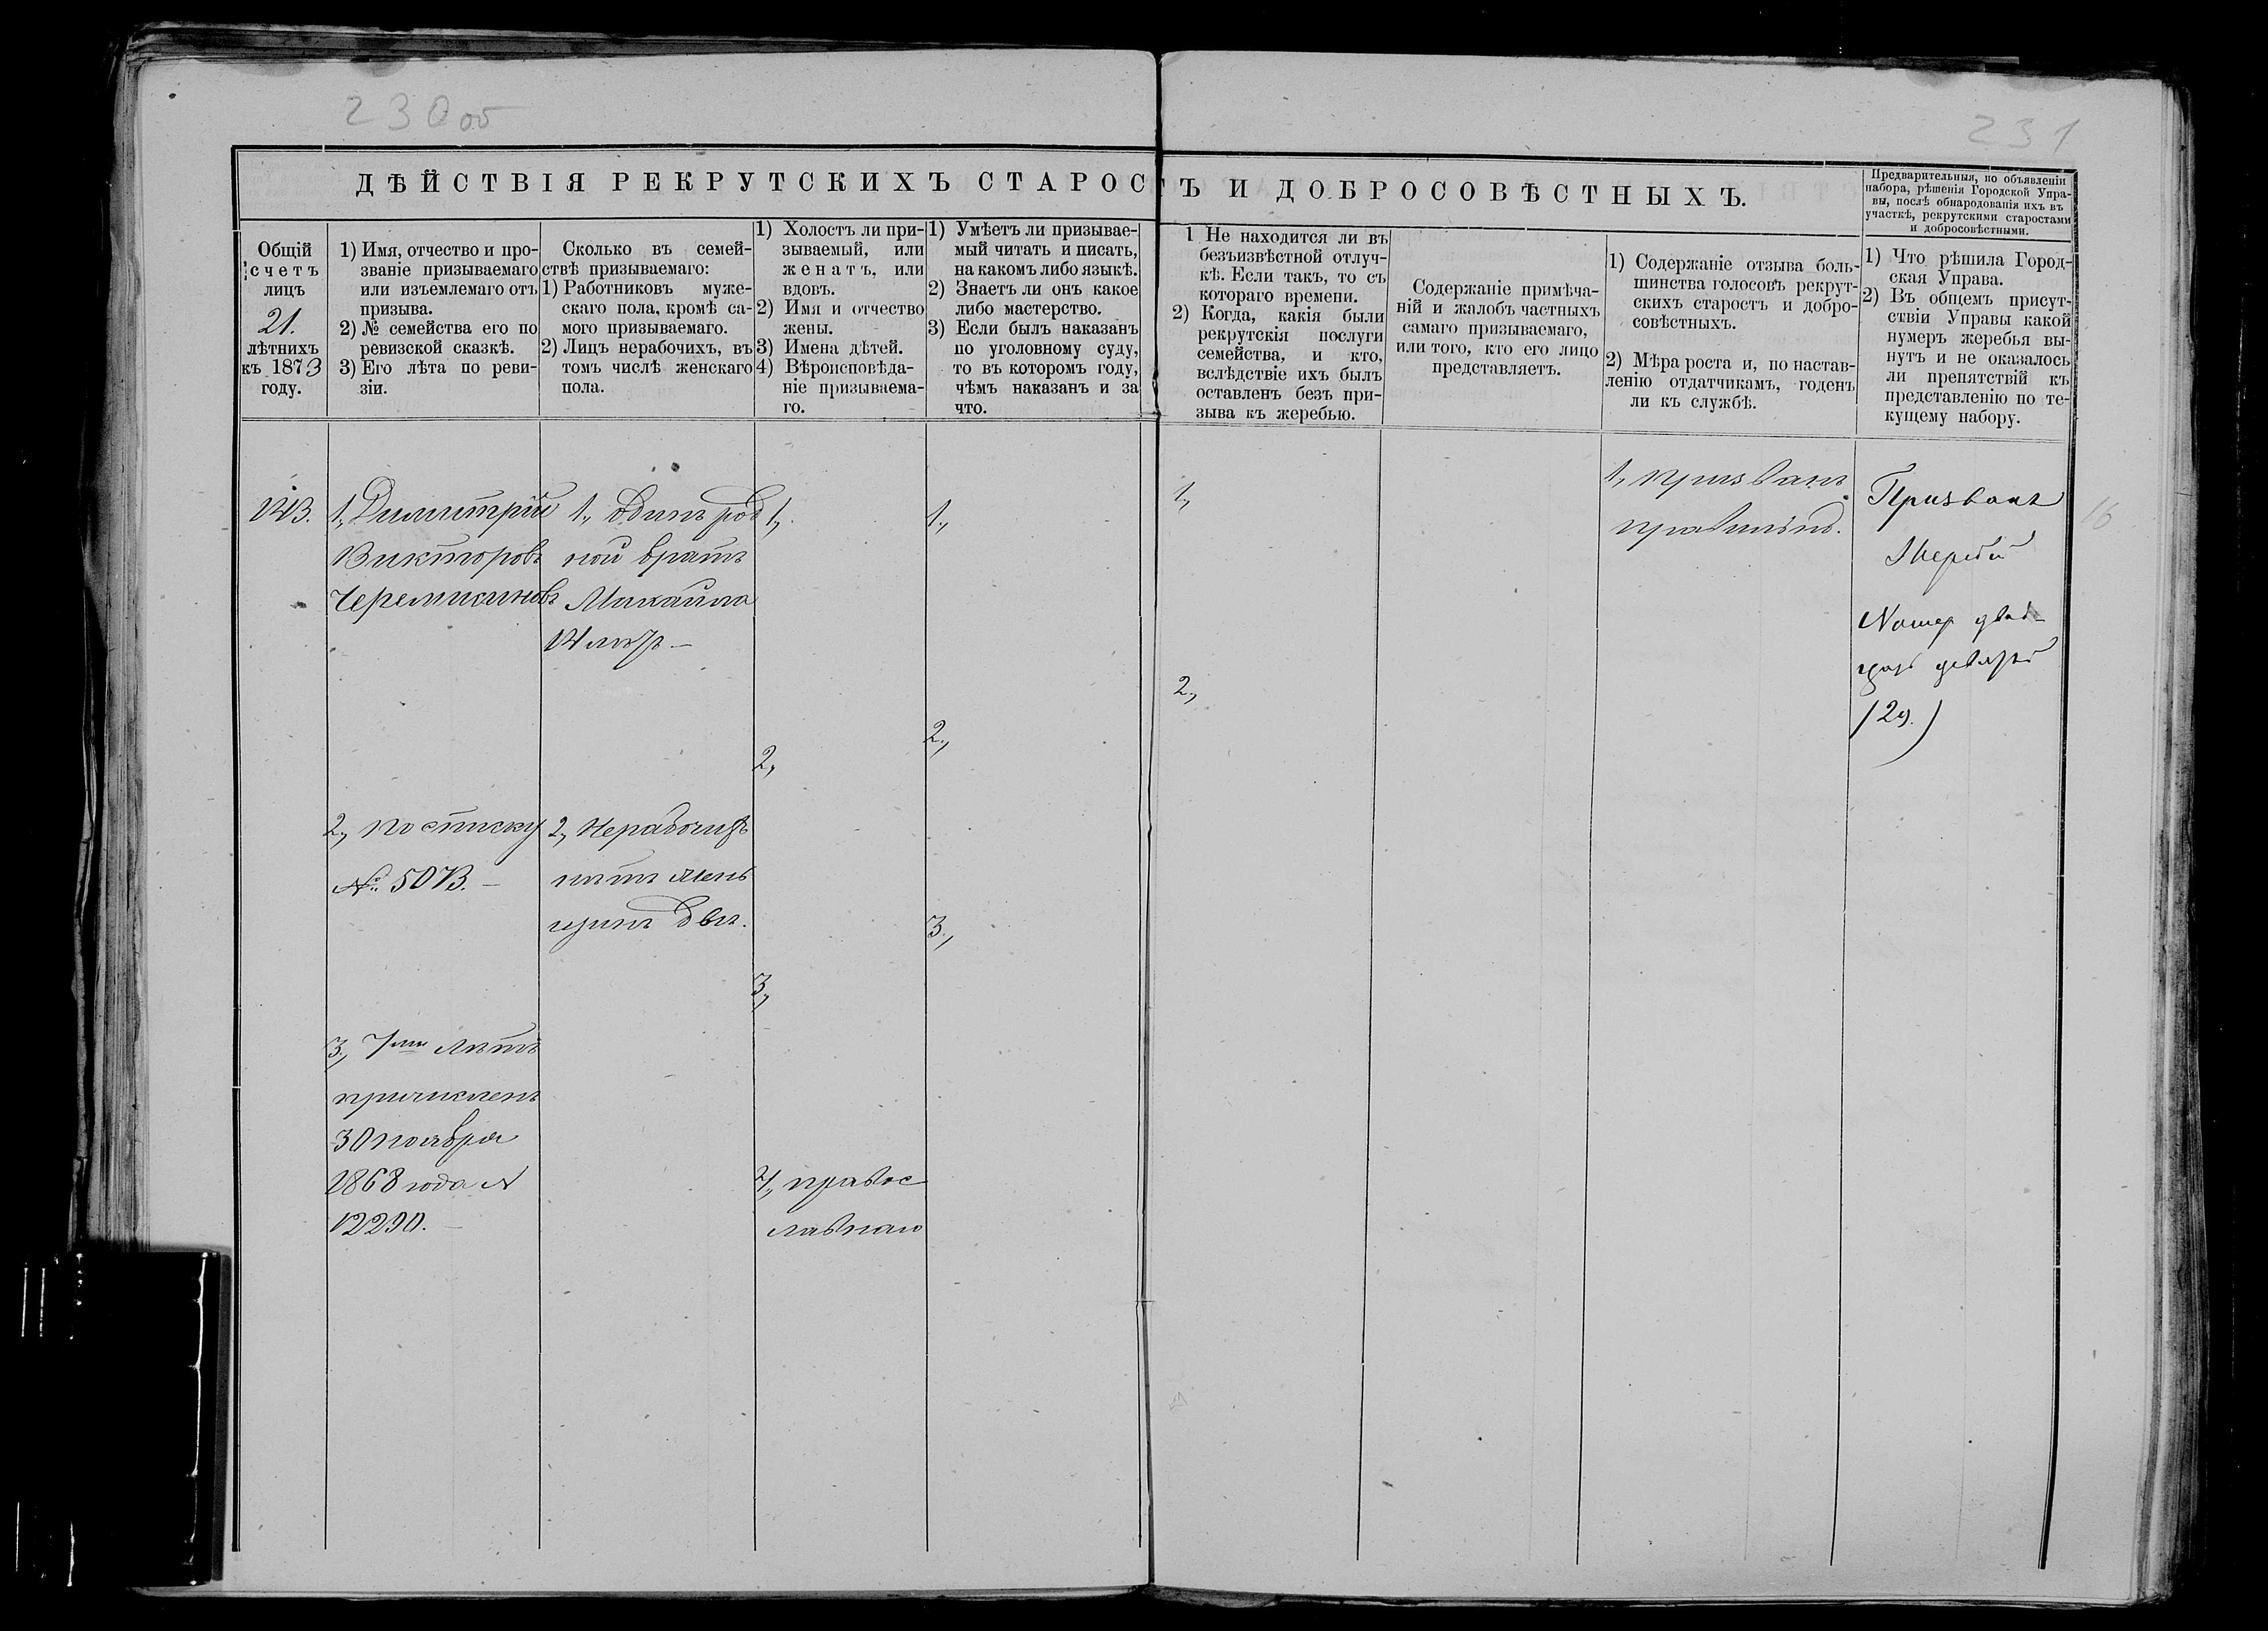 230 об
231
ДѢЙСТВІЯ РЕКРУТСКИХЪ СТАРОСТЪ И ДОБРОСОВѢСТНЫХЪ.
Предварительныя, по объявленіи
набора, рѣшенія Городской Упра-
вы, послѣ обнародованія ихъ въ
участкѣ, рекрутскими старостами
и добросовѣстными.
Общій
счетъ
лицъ
21.
лѣтнихъ
къ 1873
году.
1) Имя, отчество и про-
званіе призываемаго
или изъемлемаго отъ
призыва.
2) № семейства его по
ревизской сказкѣ.
3) Его лѣта по реви-
зіи.
Сколько въ семей-
ствѣ призываемаго:
1) Работниковъ муже-
скаго пола, кромѣ са-
мого призываемаго.
2) Лицъ нерабочихъ, въ
томъ числѣ женскаго
пола.
1) Холостъ ли при-
зываемый, или
женатъ, или
вдовъ.
2) Имя и отчество
жены.
3) Имена дѣтей.
4) Вѣроисповѣда-
ніе призываема-
го.
1) Умѣетъ ли призывае-
мый читать и писать,
на какомъ либо языкѣ.
2) Знаетъ ли онъ какое
либо мастерство.
3) Если былъ наказанъ
по уголовному суду,
то въ которомъ году,
чѣмъ наказанъ и за
что.
1 Не находится ли въ
безъизвѣстной отлуч-
кѣ. Если такъ, то съ
котораго времени.
2) Когда, какія были
рекрутскія послуги
семейства, и кто,
вслѣдствіе ихъ былъ
оставленъ безъ при-
зыва къ жеребью.
Содержаніе примѣча-
ній и жалобъ частныхъ
самаго призываемаго,
или того, кто его лицо
представляетъ.
1) Содержаніе отзыва боль-
шинства голосовъ рекрут-
скихъ старостъ и добро-
совѣстныхъ.
2) Мѣра роста и, по настав-
ленію отдатчикамъ, годенъ
ли къ службѣ.
1) Что рѣшила Город-
ская Управа.
2) Въ общемъ присут-
ствіи Управы какой
нумеръ жеребья вы-
нутъ и не оказалось
ли препятствій къ
представленію по те-
кущему набору.
113.
1, Димитрій
Викторовъ
Черемисиновъ
2, по списку
№ 5073. —
3, 7ми Лѣтъ
причисленъ
30 ноября
1868 года №
12290. —
1, Одинъ род
ной братъ
Михаила
14 лѣтъ —
2, Нерабочихъ
нѣтъ жен
щинъ двѣ.
1,
2,
3,
4, правос
лавнаго
1,
2,
3,
1,
2,
1, призванъ
правильно.
Призванъ
Жеребій
Номер двад-
цать девятый
(29.)
16